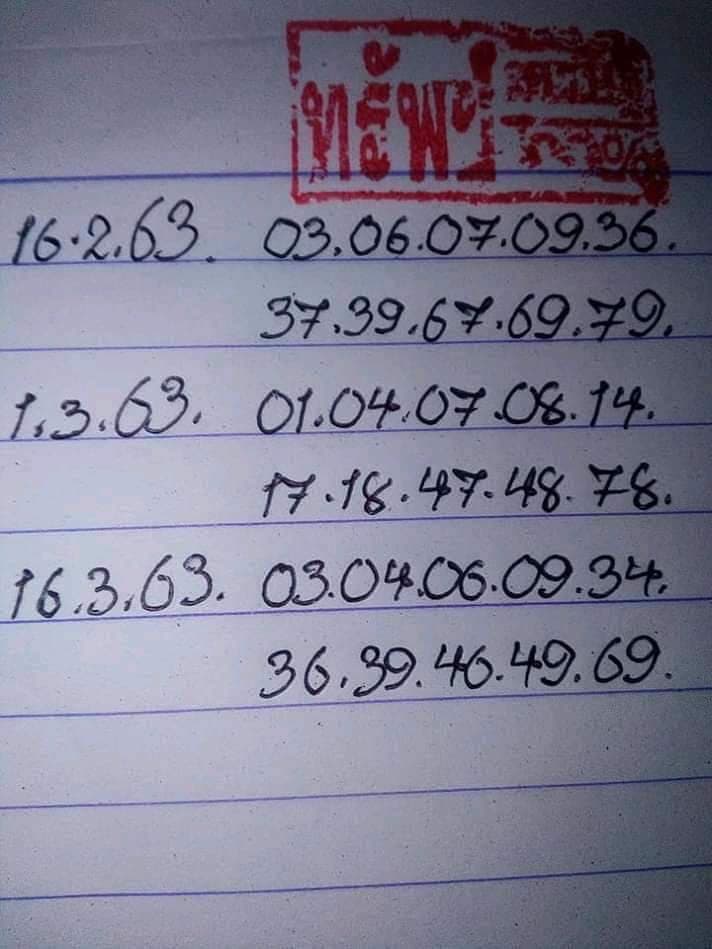 ทรัพย์
16.2.63. 03.06.07.09.36.
37.39.67.69.79.
1.3.63. 01.04.07.08.14.
17.18.47.48.78.
16.3.63. 03.04.06.09.34.
36.39.46.49.69.